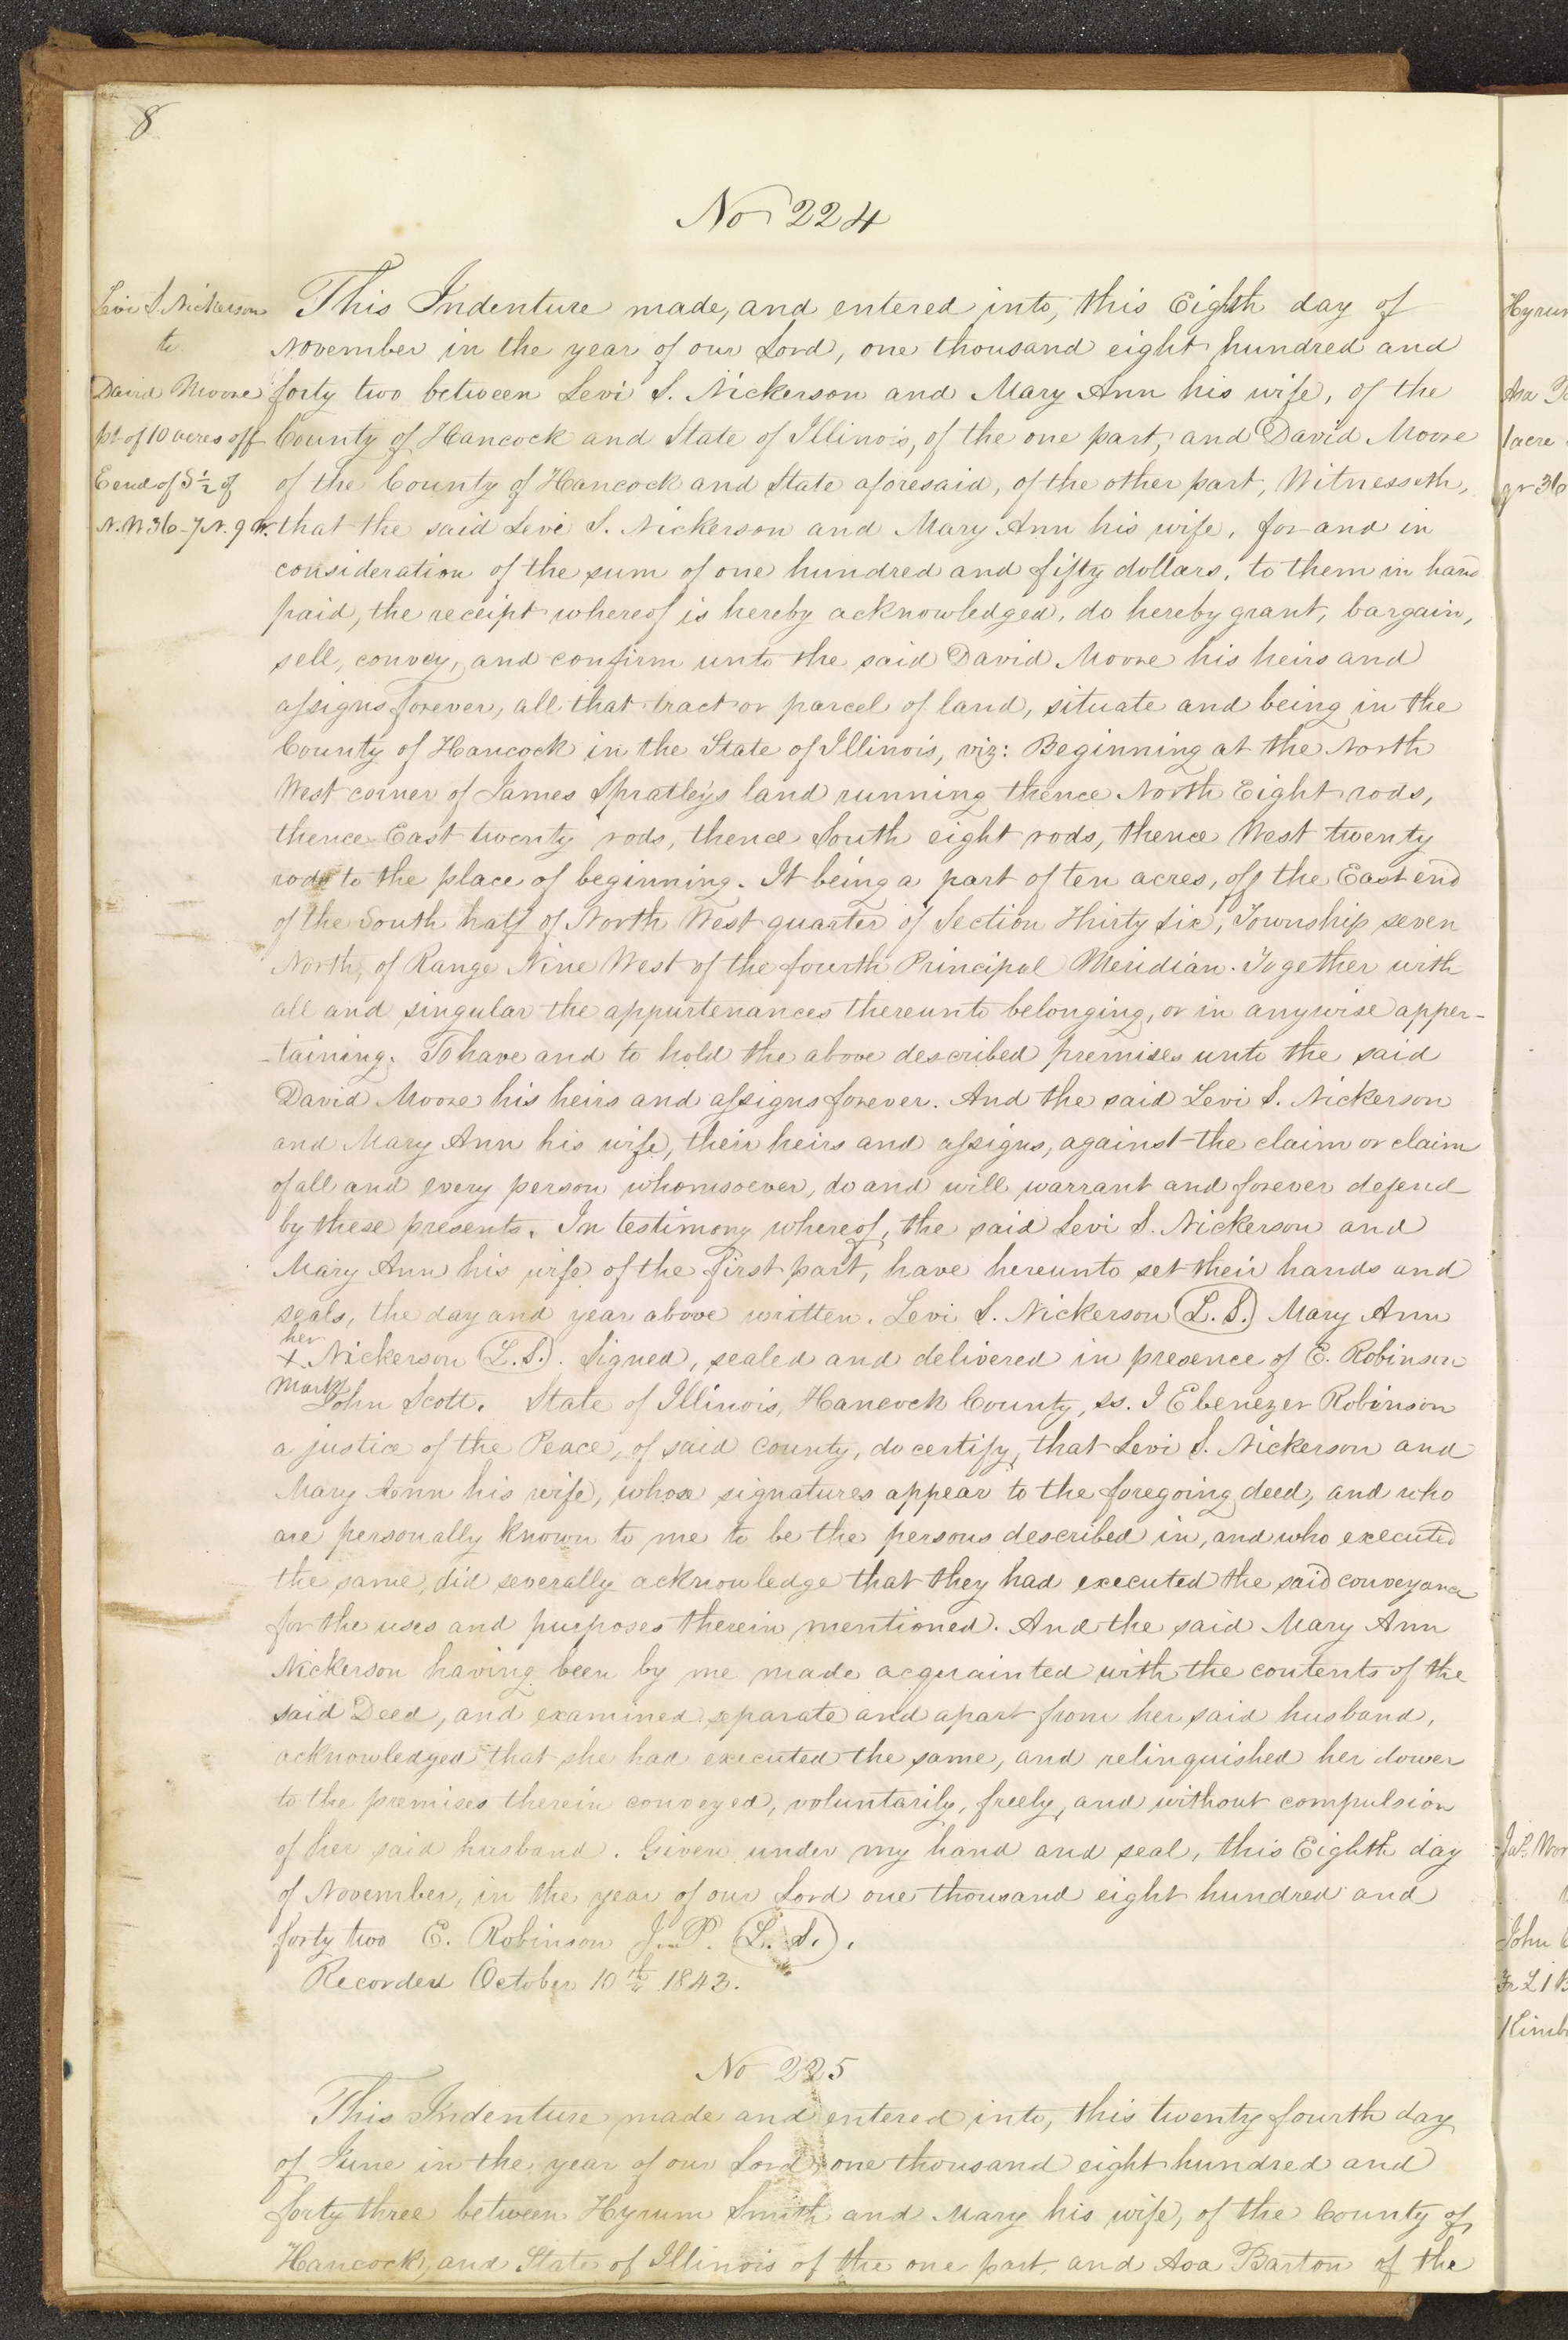 8
No 224
Levi S. Nickerson
to
David Moore
pt of 10 acres off
E end of S ½ of
N.W. 36-7N. 9 W.
This Indenture made, and entered into, this Eighth day of
November in the year of our Lord, one thousand eight hundred and
forty two between Levi S. Nickerson and Mary Ann his wife, of the
County of Hancock and State of Illinois, of the one part, and David Moore
of the County of Hancock and State aforesaid, of the other part, Witnesseth,
that the said Levi S. Nickerson and Mary Ann his wife, for and in
consideration of the sum of one hundred and fifty dollars, to them in hand
paid, the receipt whereof is hereby acknowledged, do hereby grant, bargain,
sell, convey, and confirm unto the said David Moore his heirs and
assigns forever, all that tract or parcel of land, situate and being in the
County of Hancock in the State of Illinois, viz: Beginning at the North
West corner of James Spratley's land running thence North Eight rods,
thence East twenty rods, thence South eight rods, thence West twenty
rods to the place of beginning. It being a part of ten acres, off the East end
of the South half of North West quarter of Section Thirty Six, Township seven
North, of Range Nine West of the fourth Principal Meridian. Together with
all and singular the appurtenances thereunto belonging, or in anywise apper-
-taining. To have and to hold the above described premises unto the said
David Moore his heirs and assigns forever. And the said Levi S. Nickerson
and Mary Ann his wife, their heirs and assigns, against the claim or claim
of all and every person whomsoever, do and will warrant and forever defend
by these presents. In testimony whereof, the said Levi S. Nickerson and
Mary Ann his wife of the first part, have hereunto set their hands and
seals, the day and year above written. Levi S. Nickerson (L.S.) Mary Ann
her
x Nickerson (L.S.). Signed, sealed and delivered in presence of E. Robinson
mark
John Scott. State of Illinois, Hancock County, ss. I Ebenezer Robinson
a justice of the Peace, of said county, do certify, that Levi S. Nickerson and
Mary Ann his wife, whose signatures appear to the foregoing deed, and who
are personally known to me to be the persons described in, and who executed
the same, did severally acknowledge that they had executed the said conveyance
for the uses and purposes therein mentioned. And the said Mary Ann
Nickerson having been by me made acquainted with the contents of the
said Deed, and examined separate and apart from her said husband,
acknowledged that she had executed the same, and relinquished her dower
to the premises therein conveyed, voluntarily, freely, and without compulsion
of her said husband. Given under my hand and seal, this Eighth day
of November, in the year of our Lord one thousand eight hundred and
forty two E. Robinson J.P. (L.S.).
Recorded October 10th 1843.
No 225
This Indenture made and entered into, this twenty fourth day
of June in the year of our Lord one thousand eight hundred and
forty three between Hyrum Smith and Mary his wife, of the County of
Hancock, and State of Illinois of the one part, and Asa Barton of the
Hyrum
Asa
1 acre
qr 36
John